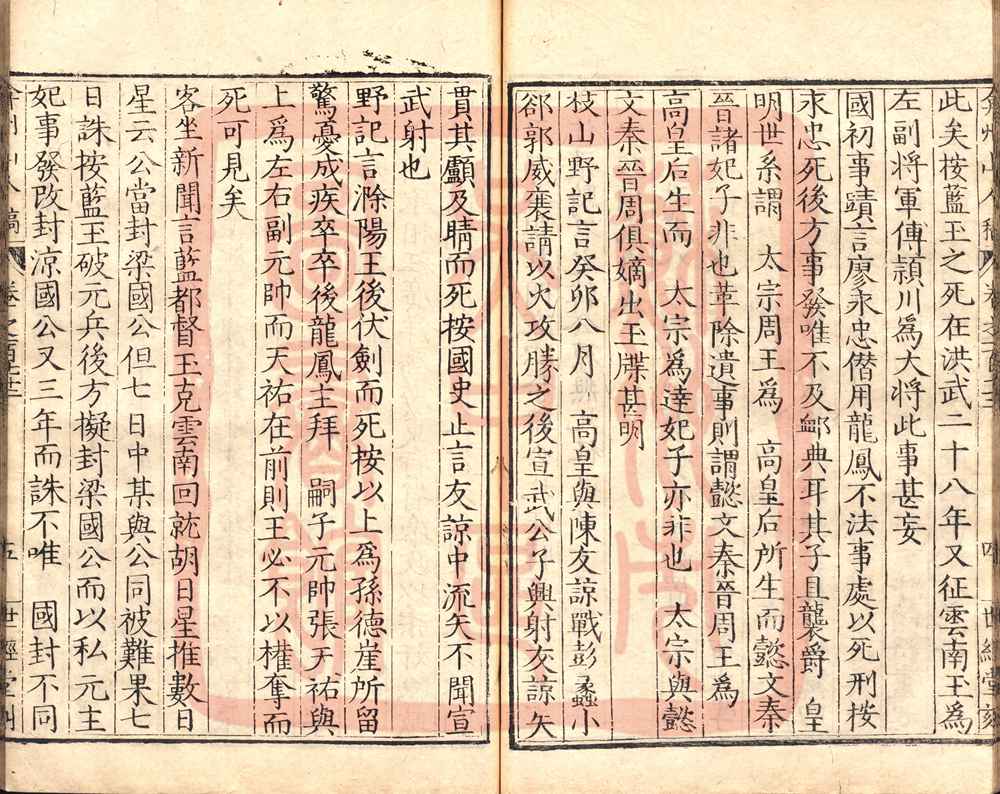 弇州山人稿 卷之一百 四 世經堂刻
此矣按藍玉之死在洪武二十八年又征雲南王為
左副將軍傅潁川為大將此事甚妄
國初事蹟言廖永忠僣用龍鳳不法事處以死刑按
永忠死後方事發唯不及卹典耳其子且襲爵 皇
明世系謂 太宗周王為 高皇后所生而懿文秦
晉諸妃子非也革除遺事則謂懿文秦晉周王為
高皇后生而 太宗為達妃子亦非也 太宗與懿
文秦晉周俱嫡出玉牒甚明
枝山野記言癸卯八月 高皇與陳友諒戰彭蠡小
郤郭威襄請以火攻勝之後宣武公子興射友諒矢
貫其顱及睛而死按國史止言友諒中流矢不聞宣
武射也
野記言滁陽王後伏劍而死按以上為孫德崖所留
驚憂成疾卒卒後龍鳳主拜 嗣子元帥張天祐與
上為左右副元帥而天祐在前則王必不以權奪而
死可見矣
客坐新聞言藍都督玉克雲南回就胡日星推數日
星云公當封梁國公但七日中某與公同被難果七
日誅按藍玉破元兵後方擬封梁國公而以私元主
妃事發改封凉國公又三年而誅不唯 國封不同
弇州山人稿 卷之百 五 世經堂刻